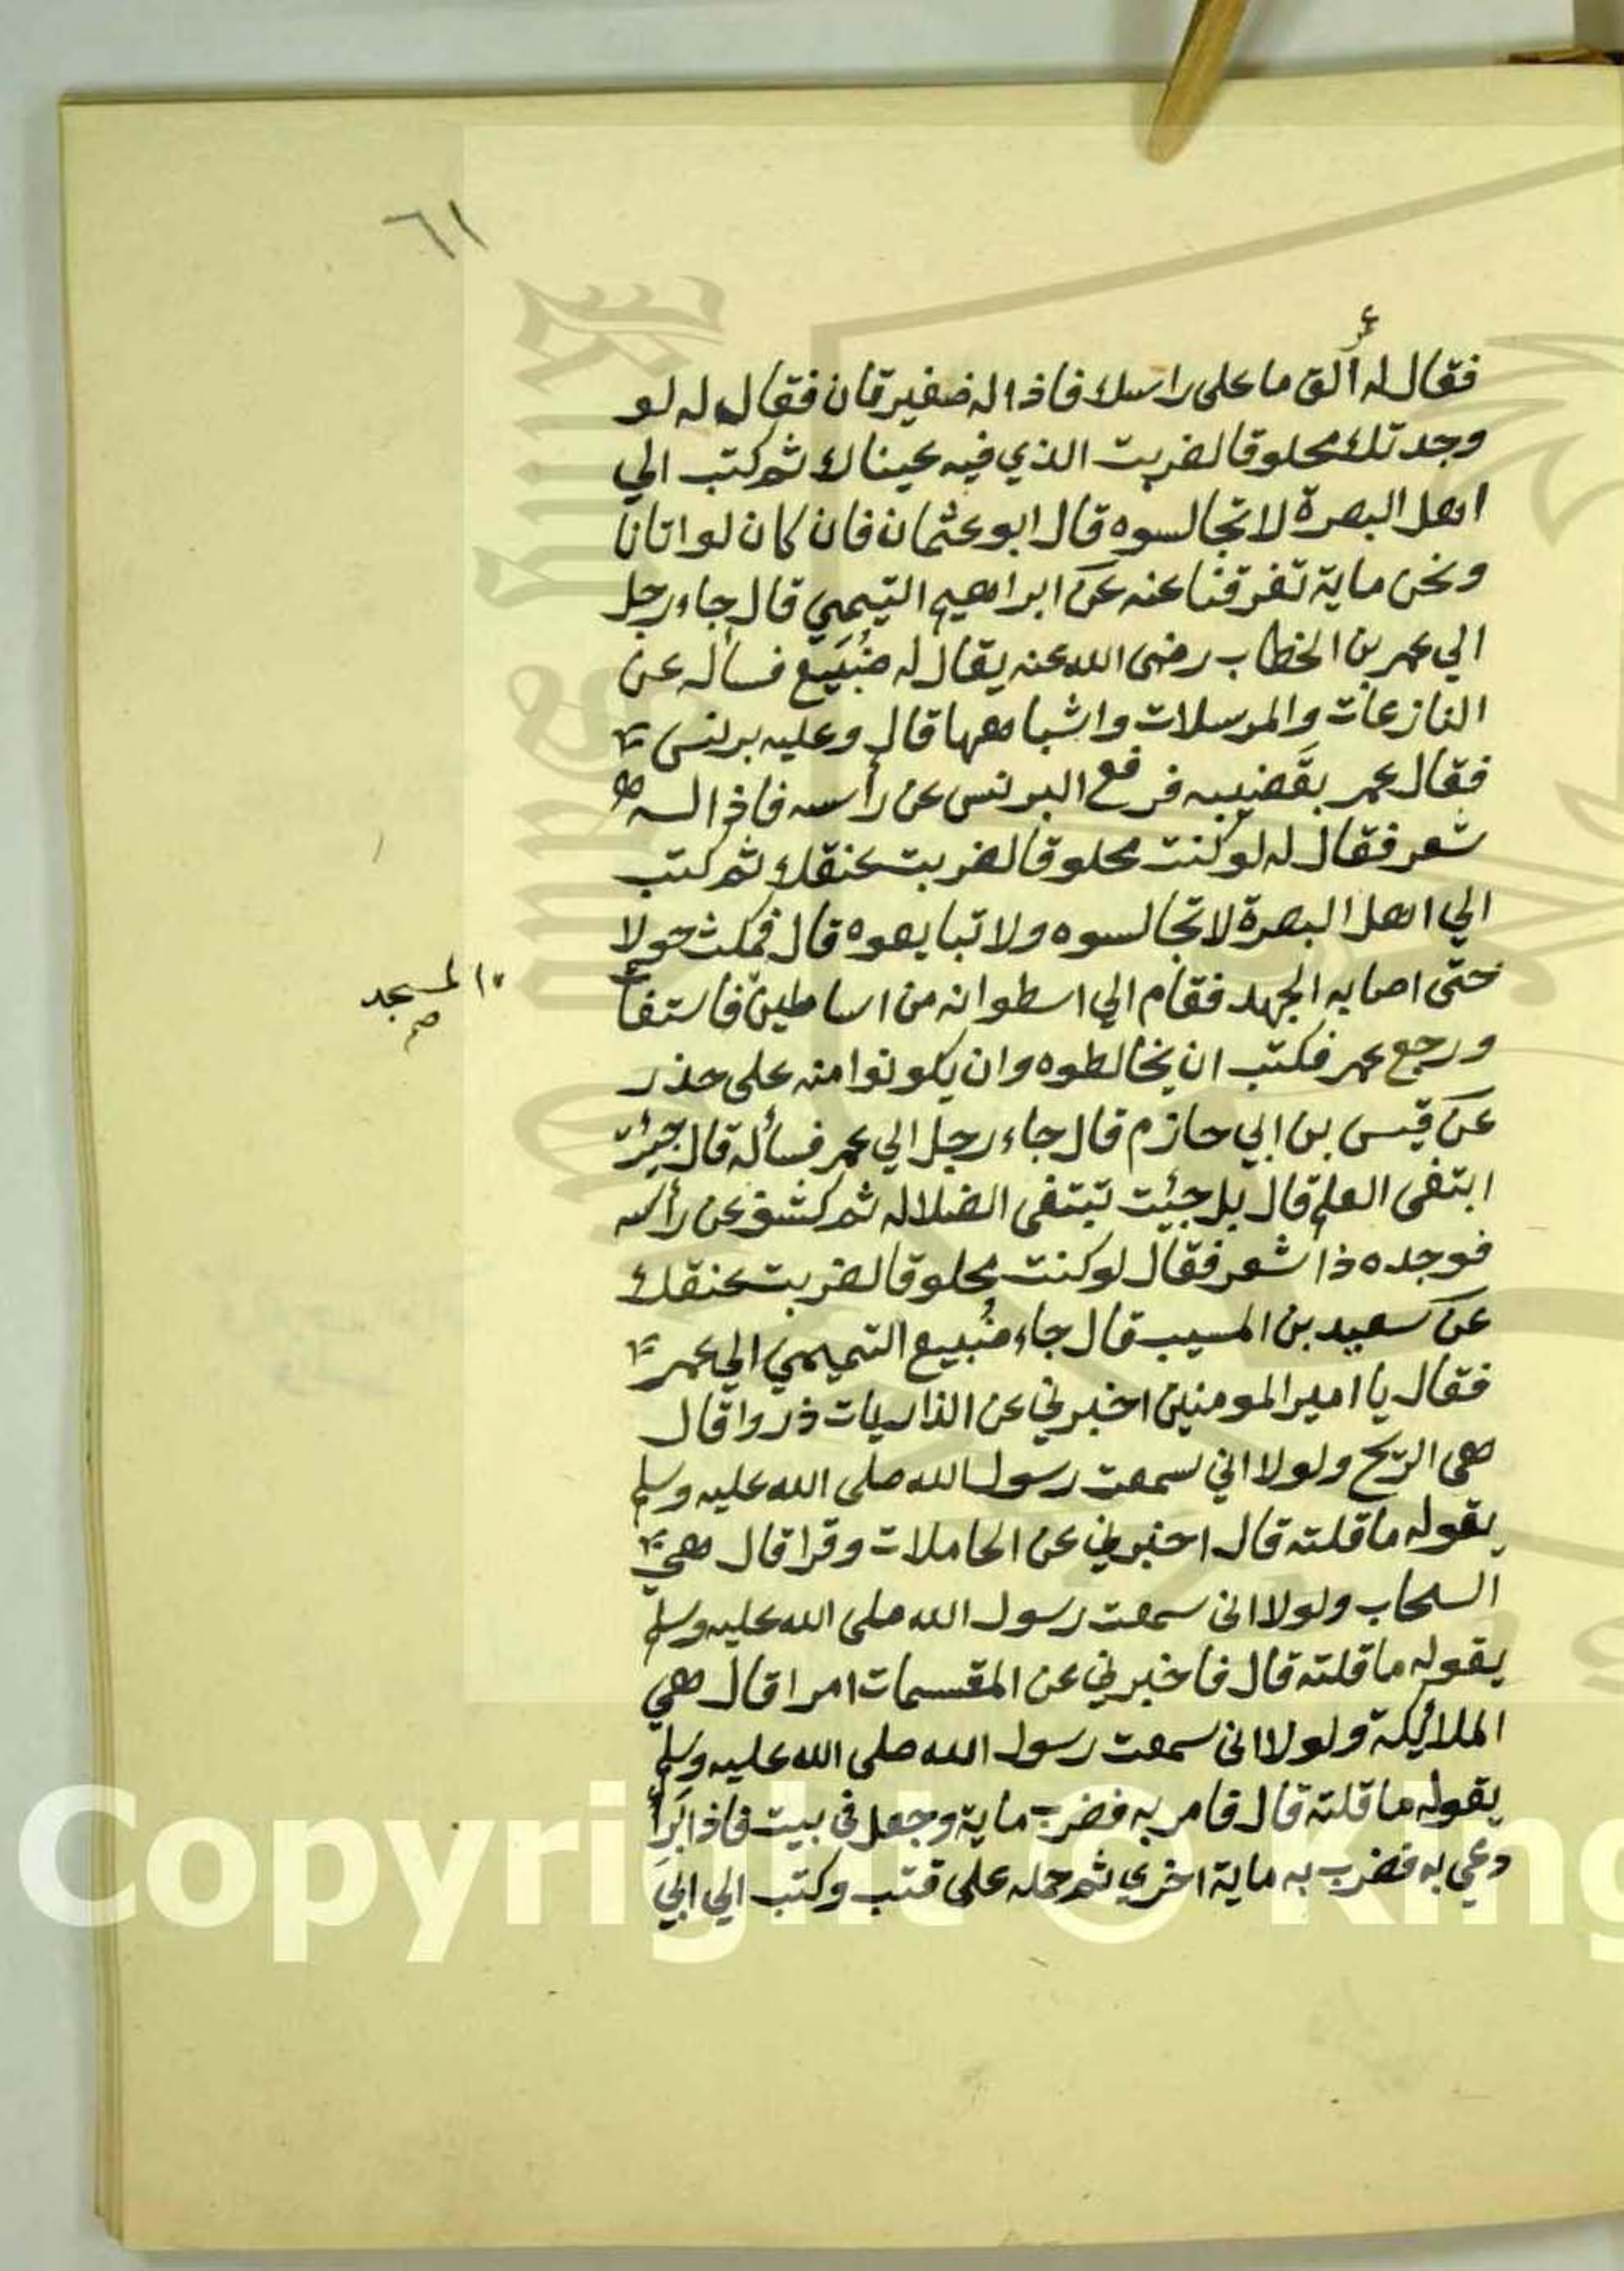 ٦١
فقال له ألق ما على راسك فاذا له ضفيرتان فقال له لو
وجدتك محلوقا لضربت الذي فيه عيناك ثم كتب الي
اهل البصرة لا تجالسوه قال ابو عثمان فان كان لو اتانا
ونحن ماية تفرقنا عنه عن ابراهيم التيمي قال جاء رجل
الي عمر بن الخطاب رضى الله عنه يقال له ضُبَيع فساله عن
النازعات والمرسلات واشباهها قال وعليه برنس
فقال عمر بقضيبه فرفع البرنس عن رأسه فاذا له
شعر فقال له لو كنت محلوقا لضربت عنقك ثم كتب
الي اهل البصرة لا تجالسوه ولا تبايعوه قال فمكث حولا
حتى اصابه الجهد فقام الي اسطوانه من اساطين فاستفأ
المسجد
صح
ورجع عمر فكتب ان يخالطوه وان يكونوا منه على حذر
عن قيس بن ابي حازم قال جاء رجل الي عمر فسأله قال جيئت
ابتغى العلم قال بل جئيت تبتغى الضلاله ثم كشف عن رأسه
فوجده ذا شعر فقال لو كنت محلوقا لضربت عنقك
عن سعيد بن المسيب قال جاء ضُبيع التميمي الي عمر
فقال يا امير المومنين اخبرني عن الذاريات ذروا قال
هى الريح ولولا اني سمعت رسول الله صلى الله عليه وسلم
يقوله ما قلته قال اخبرني عن الحاملات وقرا قال هي
السحاب ولولا انى سمعت رسول الله صلى الله عليه وسلم
يقوله ما قلته قال فاخبرني عن المقسمات امرا قال هي
الملائيكة ولولا انى سمعت رسول الله صلى الله عليه وسلم
يقوله ما قلته قال فامر به فضرب ماية وجعل فى بيت فاذا برأ
دعي به فضرب به ماية اخري ثم حمله على قتب وكتب الي ابي
Copyright © King